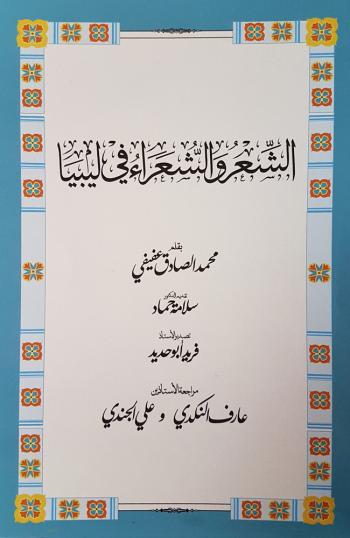 الشِّعْرُ وَالشُّعَرَاءُ فِي لِيبْيَا
بقلم
محمد الصادق عفيفي
تقديم الدكتور
سلامة حماد
تصدير الأستاذ
فريد أبو حديد
مراجعة الأستاذين
عارف النكدي و علي الجندي